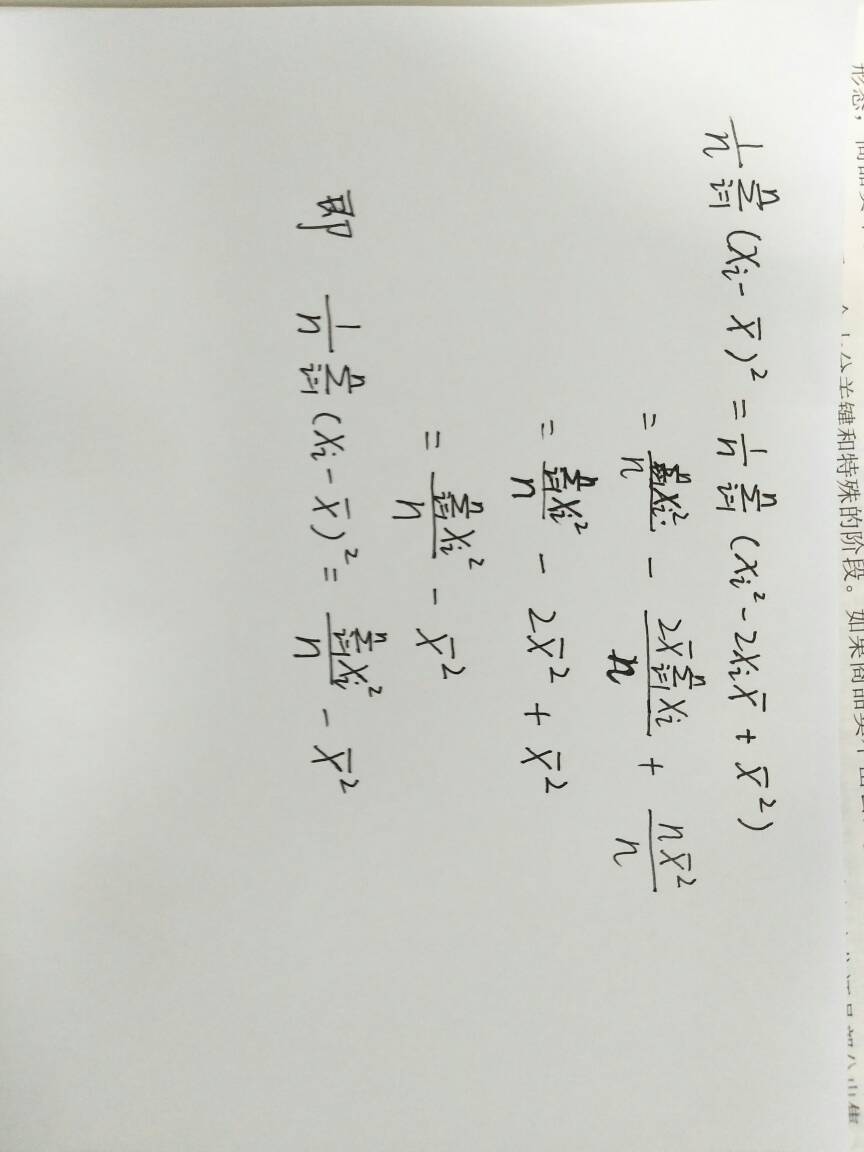 $\frac{1}{n}\sum_{i=1}^{n}(x_i-\bar{x})^2=\frac{1}{n}\sum_{i=1}^{n}(x_i^2-2x_i\bar{x}+\bar{x}^2)$
$=\frac{\sum_{i=1}^{n}x_i^2}{n}-\frac{2\bar{x}\sum_{i=1}^{n}x_i}{n}+\frac{n\bar{x}^2}{n}$
$=\frac{\sum_{i=1}^{n}x_i^2}{n}-2\bar{x}^2+\bar{x}^2$
$=\frac{\sum_{i=1}^{n}x_i^2}{n}-\bar{x}^2$
即 $\frac{1}{n}\sum_{i=1}^{n}(x_i-\bar{x})^2=\frac{\sum_{i=1}^{n}x_i^2}{n}-\bar{x}^2$
形态，商品
键和特殊的阶段。如果商品卖不出